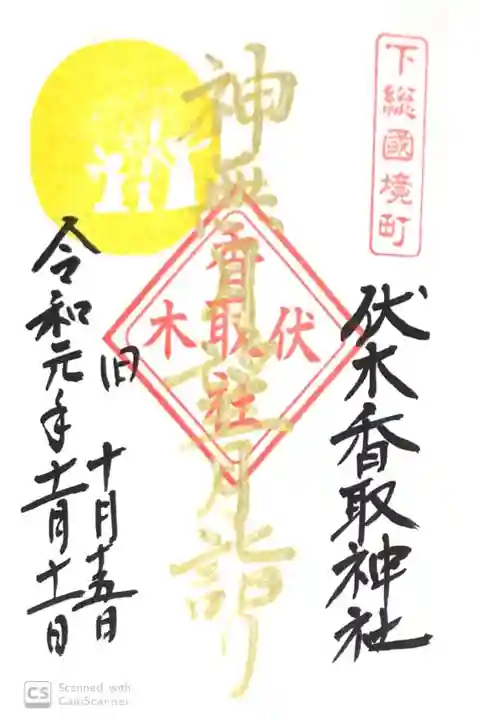 下総國境町
伏木香取神社
神無月 月詣り
伏木
香取社
旧十月十五日
令和元年十一月十一日
CS Scanned with CamScanner